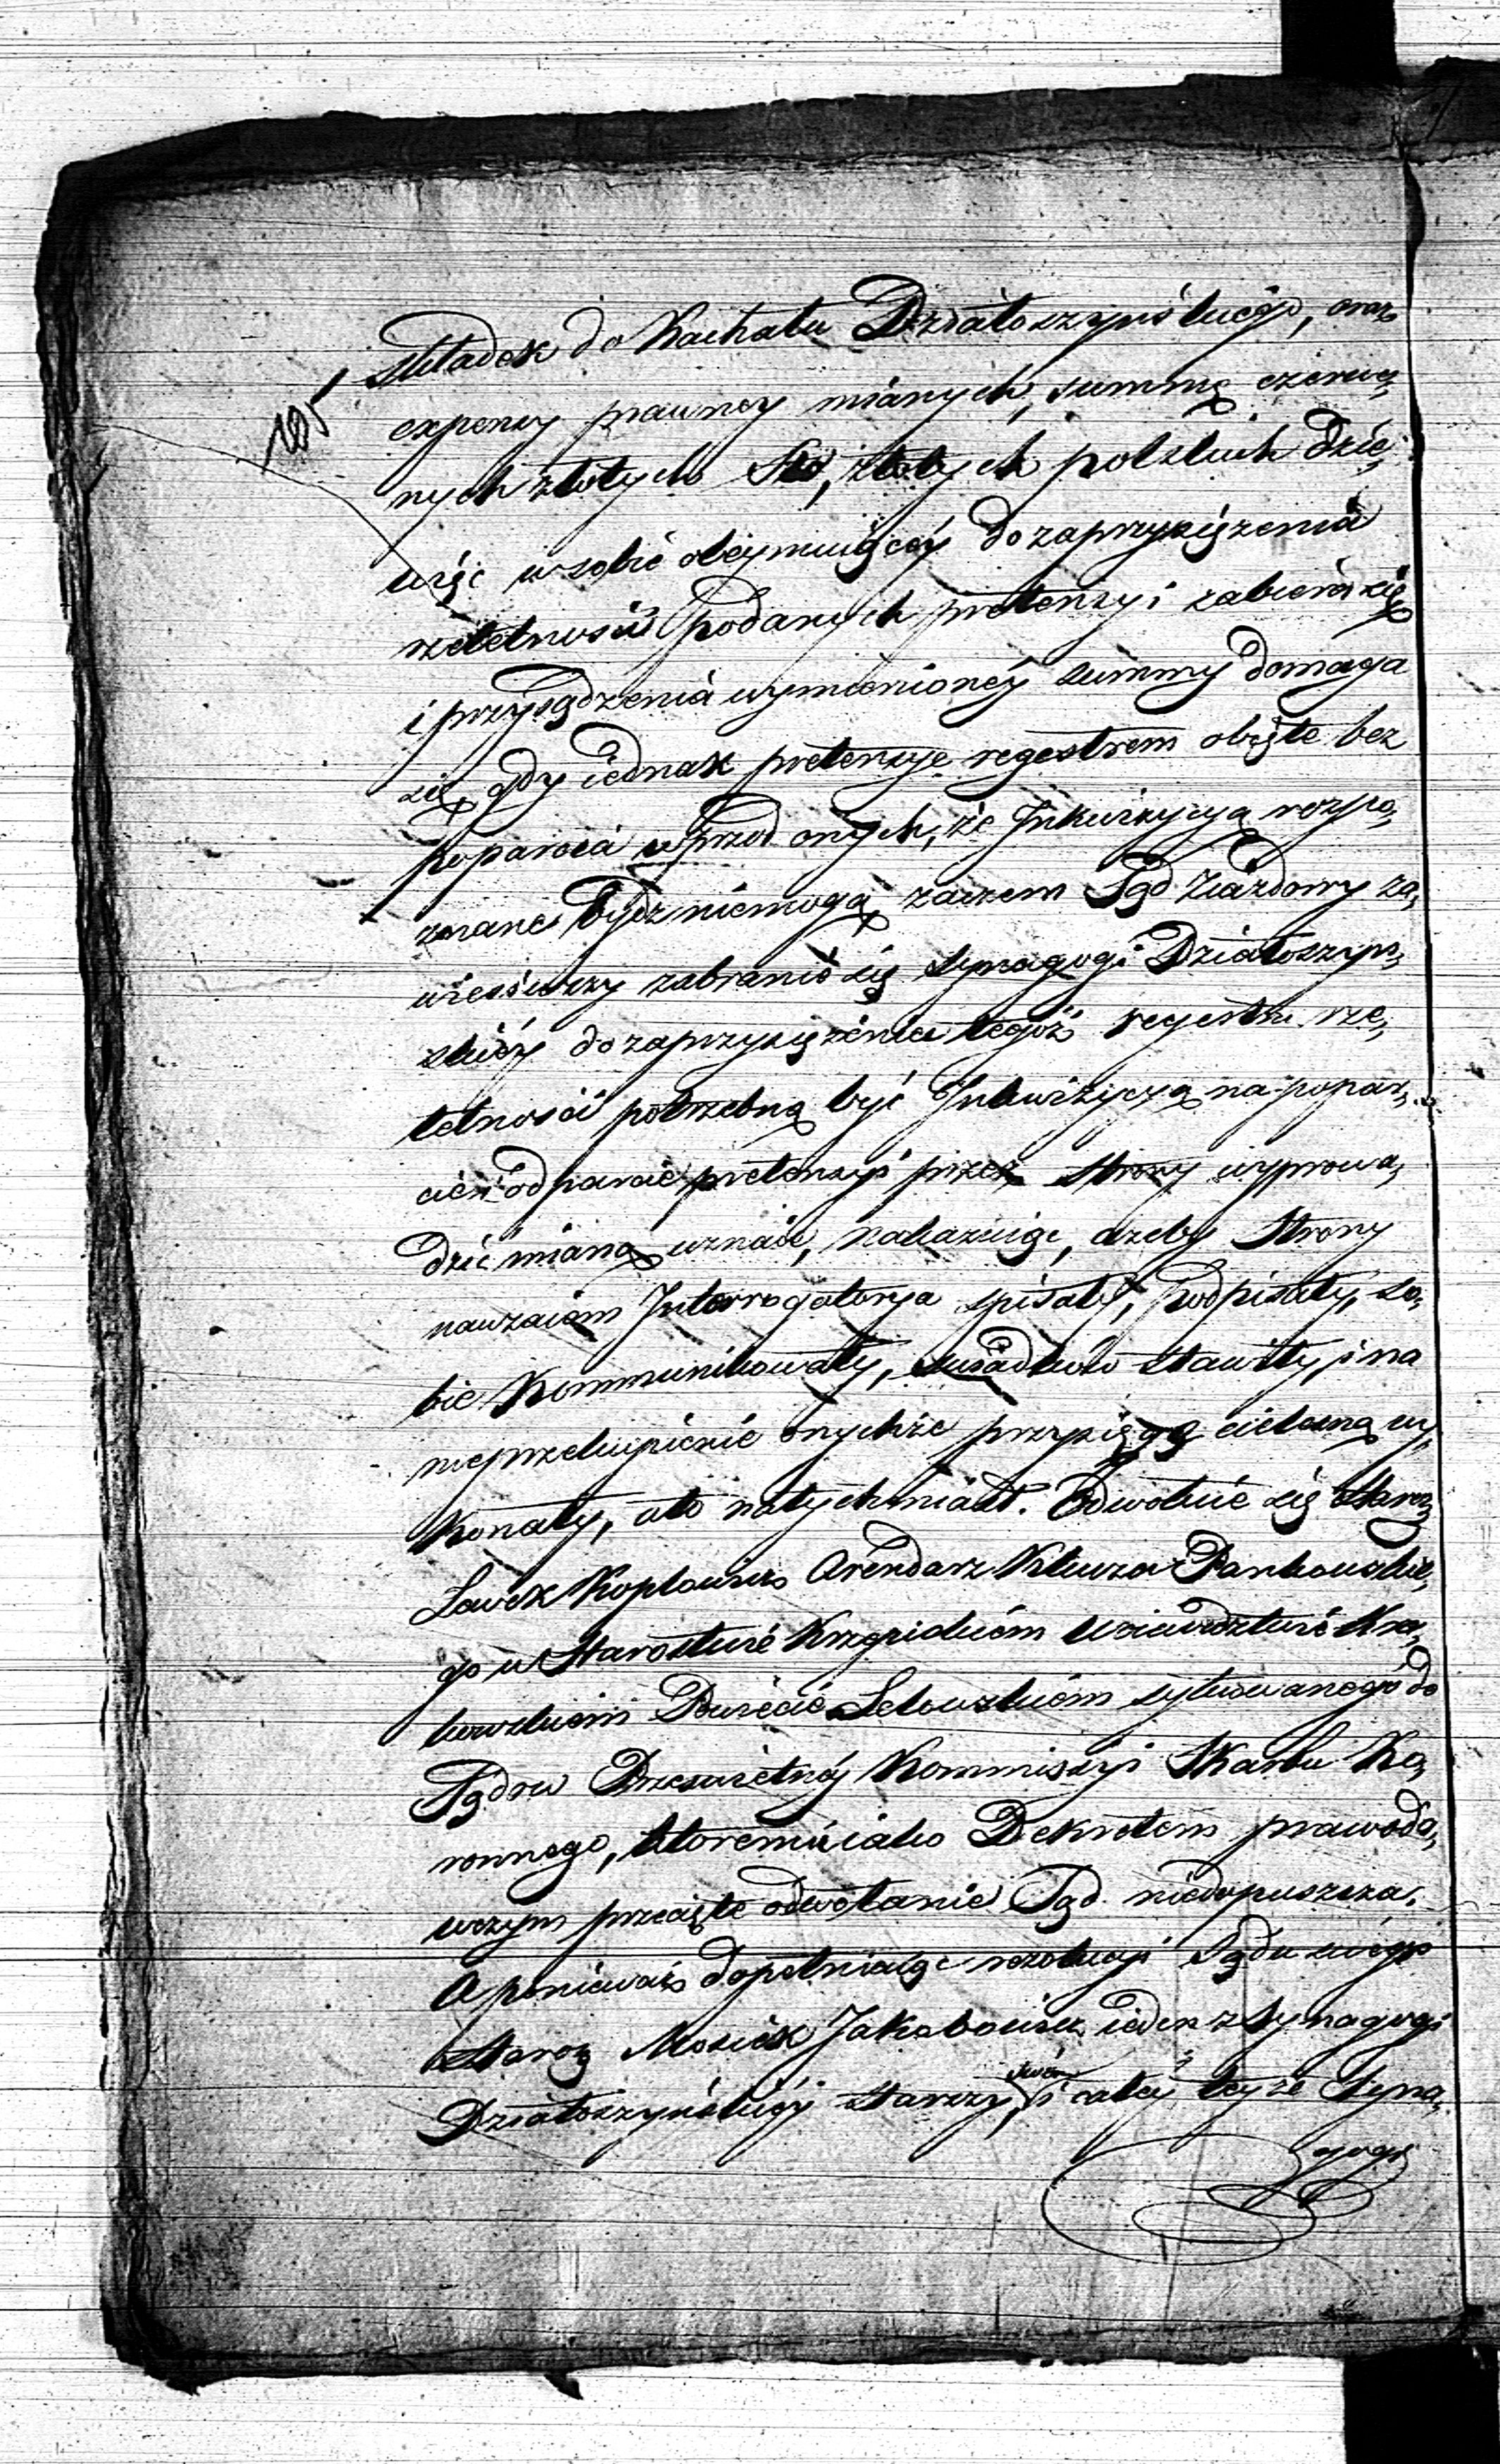 składek do Kachału Działoszyńskiego, oraz
105
expensy prawney mianych, summę czerwo„
nych złotych Sto, złotych polskich dzie„
więć w sobie obeymuiącey do zaprzysiężenia
rzetelności podanych pretensyi zabiera się
i przysądzenia wymienioney summy domaga
się, gdy iednak pretensye regestrem obięte bez
poparcia wprzod onych, że Inkwizycyą rozpo„
znane bydz niemogą, zaczem Sąd Ziazdowy za„
wiesiwszy zabranie się Synagogi Działoszyn„
skiey do zaprzysiężenia tegoż regestru rze„
telności potrzebną być Inkwizycyą na popar„
cie i odparcie pretensyi przez strony wyprowa„
dzić mianą uznaie, nakazuiąc, azeby strony
nawzaiem Interrogatorya spisały, podpisały, so„
bie kommunikowały, swiadków stawiły, i na
nieprzekupienie onychże przysięgą cielesną wy„
konały, a to natychmiast. Odwołuie się staroz:
Lewek Koplowicz Arendarz Klucza Pankowskie„
go w Starostwie Krzepickiem Woiewodztwie Kra„
kowskiem Powiecie Lelowskiem sytuowanego do
Sądu Przeswietney Kommissyi Skarbu Ko„
ronnego, ktoremu iako Dekretem prawoda„
wczym przecięte odwołanie Sąd niedopuszcza.
A ponieważ dopełniaiąc rezolucyi Sądu swego
staroz: Mosiek Jakobowicz ieden z Synagogi
swém
Działoszyńskiey starszy, i całey teyże Syna„
gogi